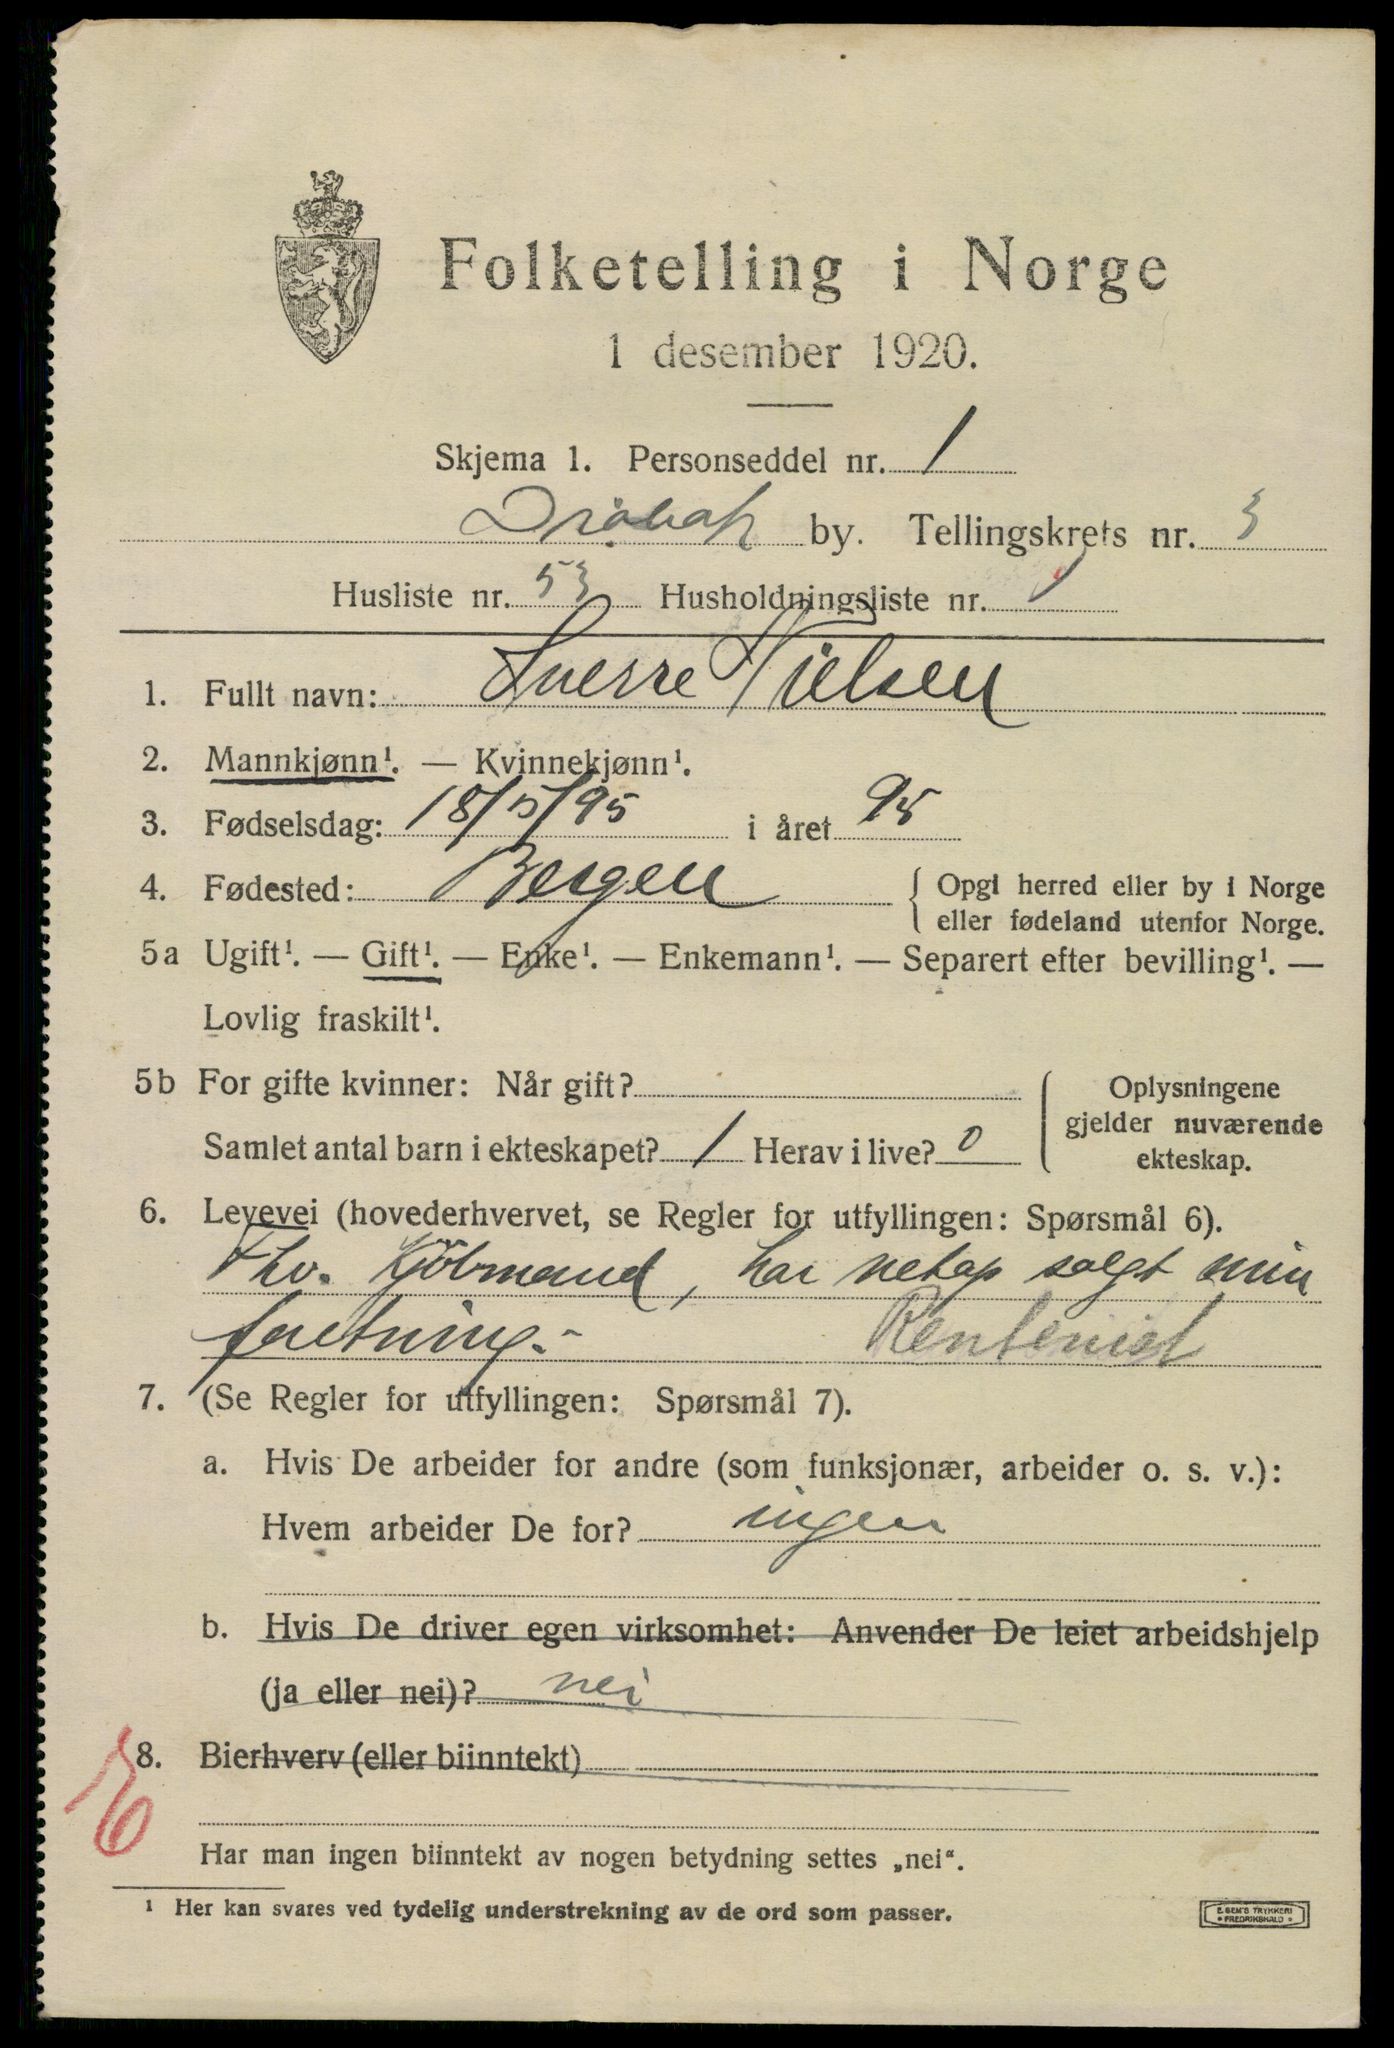 Folketelling i Norge
1 desember 1920.
Skjema 1. Personseddel nr. 1
Drøbak by. Tellingskrets nr. 3
Husliste nr. 53 Husholdningsliste nr. 1
1. Fullt navn: Sverre Nielsen
2. Mannkjønn¹. — Kvinnekjønn¹.
3. Fødselsdag: 18/5/95 i året 95
4. Fødested: Bergen { Opgi herred eller by i Norge
eller fødeland utenfor Norge.
5a Ugift¹. — Gift¹. — Enke¹. — Enkemann¹. — Separert efter bevilling¹. —
Lovlig fraskilt¹.
5b For gifte kvinner: Når gift? { Oplysningene
gjelder nuværende
Samlet antal barn i ekteskapet? 1 Herav i live? 0 ekteskap.
6. Levevei (hovederhvervet, se Regler for utfyllingen: Spørsmål 6).
Fhv. Kjøbmand, har netop solgt min
foretning.- Rentenist
7. (Se Regler for utfyllingen: Spørsmål 7).
a. Hvis De arbeider for andre (som funksjonær, arbeider o. s. v.):
Hvem arbeider De for? ingen
b. Hvis De driver egen virksomhet: Anvender De leiet arbeidshjelp
(ja eller nei)? nei
8. Bierhverv (eller biinntekt)
Har man ingen biinntekt av nogen betydning settes „nei“.
¹ Her kan svares ved tydelig understrekning av de ord som passer.
E. SEM'S TRYKKERI
• FREDRIKSHALD •